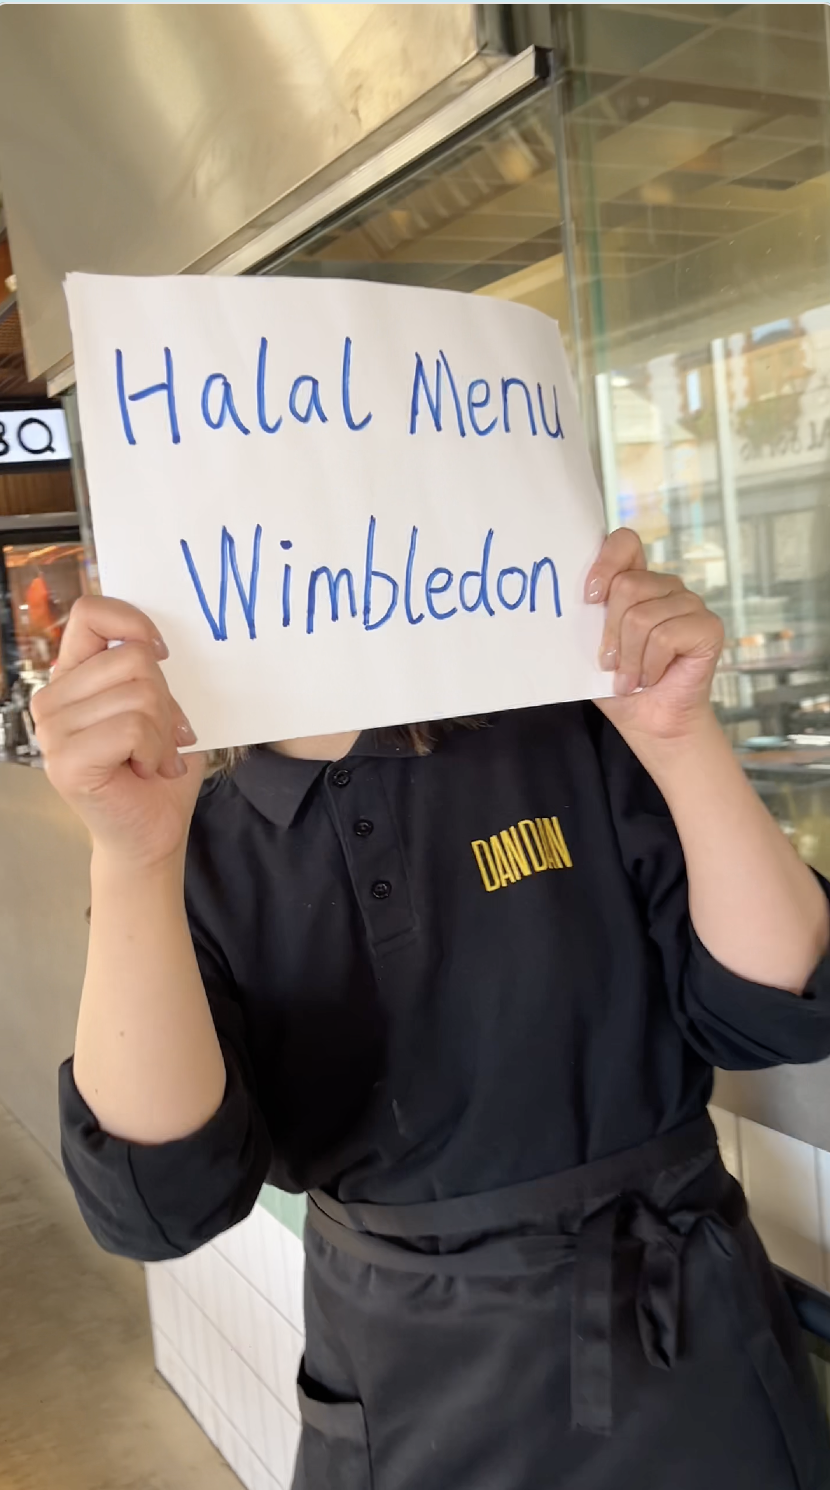 Halal Menu
Wimbledon
DANDAN